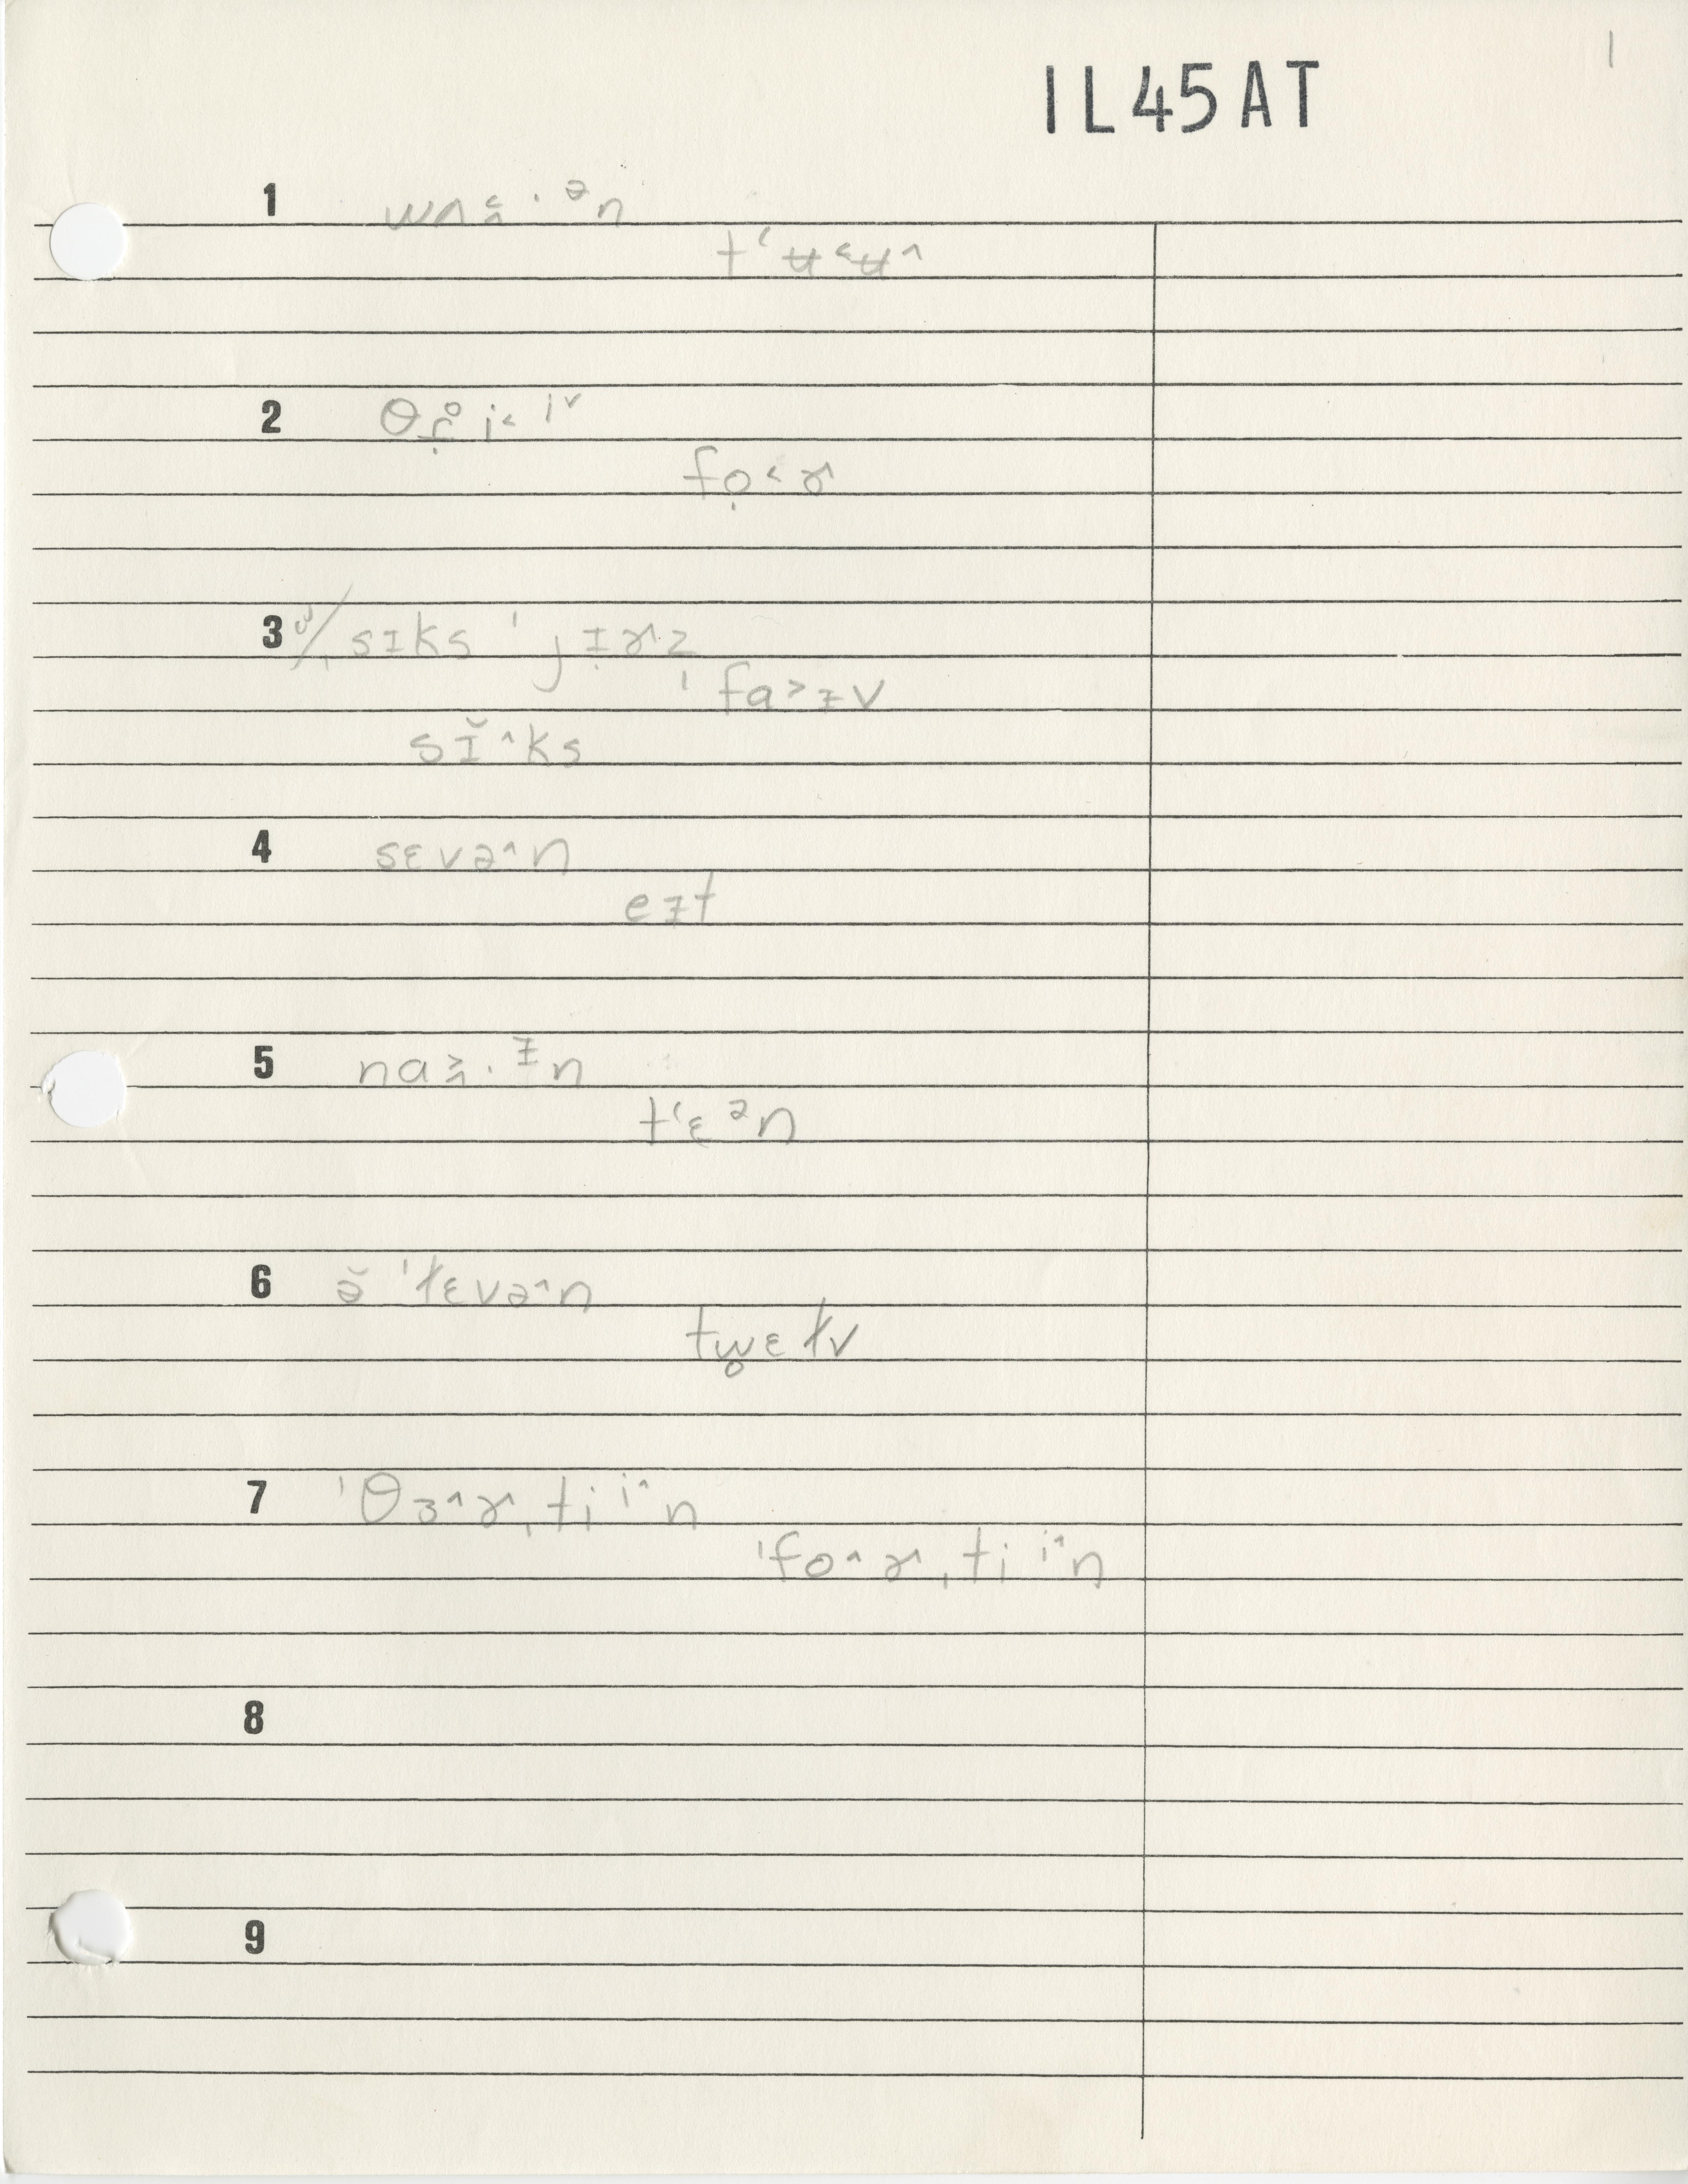 1
IL45AT
1 wʌ˂̭· ᵊn
t‘ʉ˂ʉ˄
2 θɾ̣̊i˂ iᵛ
fọ˂ɚ
3 c/ˌsɪks ˈjɪ̣ɚz
ˈfa˃ɪv
sɪ̆˄ks
4 sɛvə˄n
eɪt
5 na˃̭· ᴵn
t‘ɛ ᵊn
6 ə̆ ˈɫɛvə˄n
tw̥ɛɫv
7 ˈθɜ˄ɚˌti i˄n
ˈfo˄ɚˌti i˄n
8
9